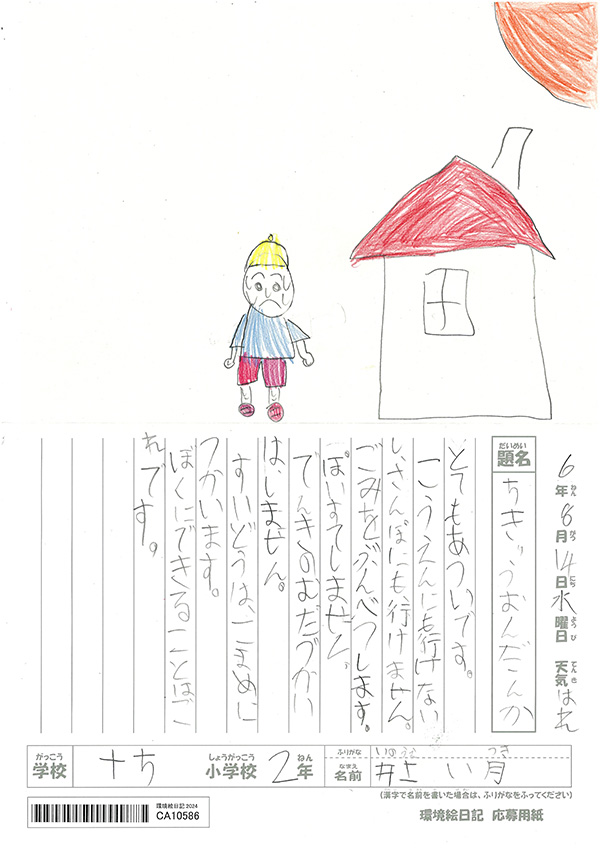 6年ねん8月がつ14日にち水曜日ようび 天気てんきはれ
題名だいめい
ちきゅうおんだんか
とてもあついです。
こうえんにも行けない
し、さんぽにも行けません。
ごみをぶんべつします。
ぽいすてしません。
でんきのむだづかい
は、しません。
すいどうは、こまめに
つかいます。
ぼくにできることはこ
れです。
がっこう しょうがっこう ねん ふりがな つき
学校 小学校 2年 なまえ 名前 井上 い月
(漢字で名前を書いた場合は、ふりがなをふってください)
環境絵日記2024
CA10586
環境絵日記 応募用紙